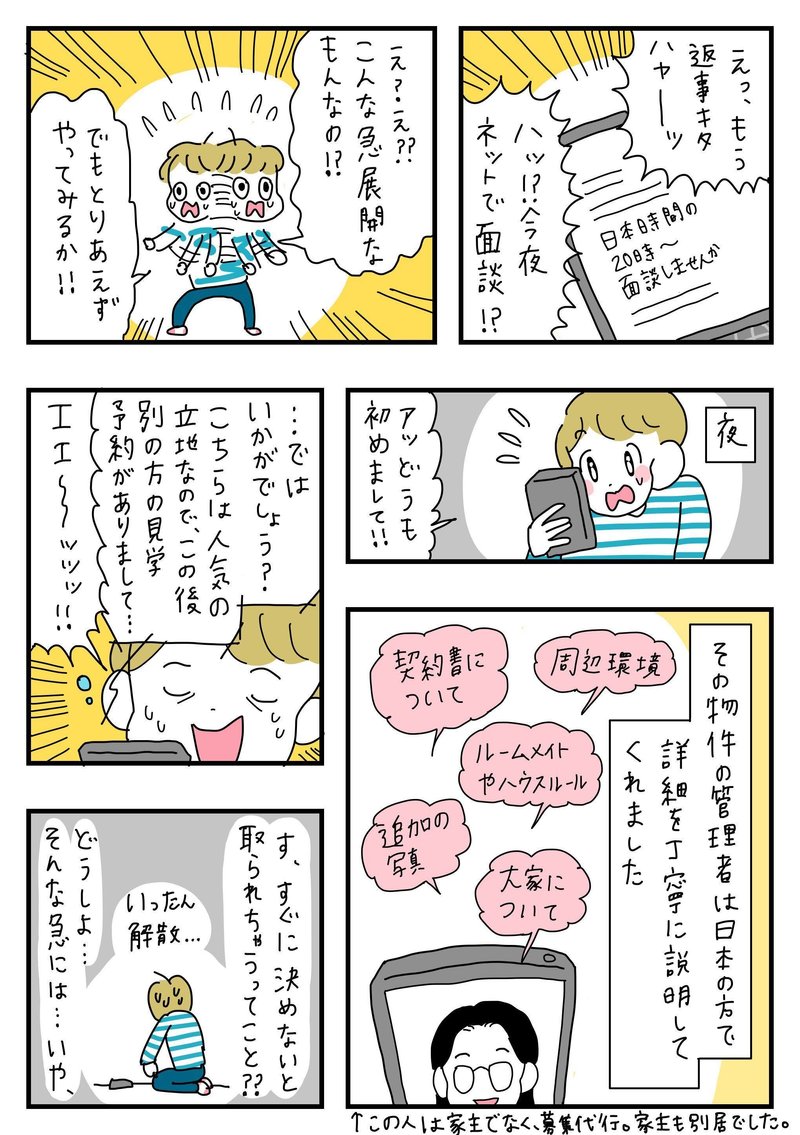 えっ、もう
返事キタ
ハヤーッ
ハッ!?今夜
ネットで面談!?
日本時間の
20時〜
面談しませんか
え?・え??
こんな急展開な
もんなの!?
でもとりあえず
やってみるか!!
夜
アッどうも
初めまして!!
…では
いかがでしょう?
こちらは人気の
立地なので、この後
別の方の見学
予約がありまして…
エエ〜〜ッッッ!!
その物件の管理者は日本の方で
詳細を丁寧に説明して
くれました
周辺環境
契約書に
ついて
ルームメイト
やハウスルール
追加の
写真
大家に
ついて
↑この人は家主でなく、募集代行。家主も別居でした。
す、すぐに決めないと
取られちゃうってこと??
いったん
解散…
どうしよ…
そんな急には…いや、